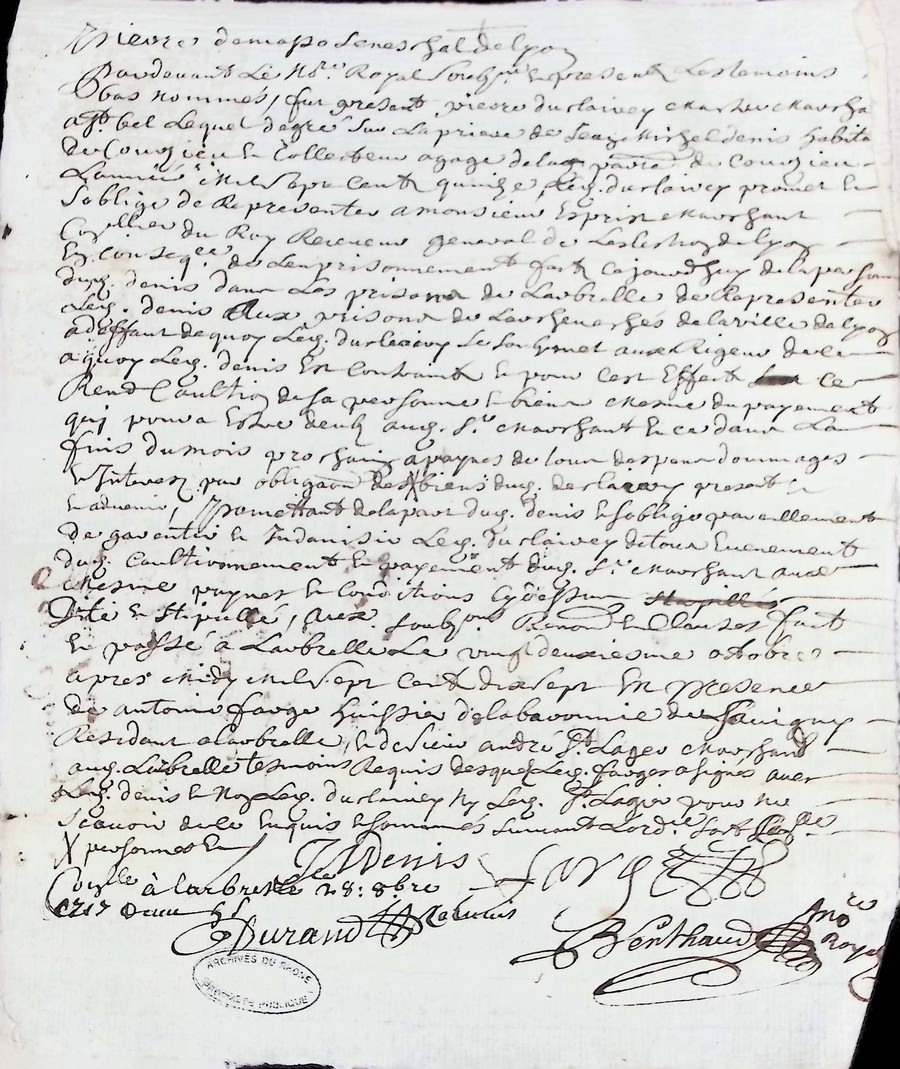 Pierre demaso seneschal de lyon
Pardevant Le No.re Royal soubz.né en presence Les temoins
bas nommés, fut present pierre duclairey marchand
a St bel Lequel de gré sur La priere de Jean Michel denis habita
de Courzieu et Collecteur agage de la parroisse de Courzieu
L'année mil sept cent quinze, Led. duclairey promet et
s'oblige de Representer a monsieur Esprit marchant
Con.ller du Roy Receveur general de Lellection de lyon
En conseq.ce de L'emprisonnement fait ce jourd'huy de la person
dud. denis dans Les prisons de Larbrelle de Representer
Led. denis Aux prisons de L'archevesché de la ville de lyon
a deffaut de quoy Led. duclairey se soubzmet aux Rigeur de
a quoy Led. denis Est Contraint et pour Cest Effect ce
Rend Caution de sa personne et biens mesme du payement
qui poura Estre deub aud. Sr. marchant Et ce dans La
fins du mois prochain a paynes de tous despens dommages
et Interest par obliga͠on de biens dud. duclairey present et
et advenir, promettant de la part dud. denis et s'oblige pareillement
de garentir et Indanisir Led. duclairey de tout Evenement
dud. Caultionnement et payement dud. Sr. marchant aux
mesme paynes et Conditions Cydessus
et Stipullé, Avec soubz.ons Renon.ons et Clauses fait
et passé à Larbrelle Le vingt deuxiesme octobre
apres midy mil sept cent dix sept En presence
de antoine farge huissier de la baronnie de Savigny
Residant a Larbrelle, et de sieur andré St Lager marchand
aud. Larbrelle tesmoins Requis desquels Led. farges a signés avec
Led. denis et Non Led. duclairey Ny Led. St Lager pour ne
scavoir de ce Enquis et sommés suivant L'ord.ce
X personnes et
JM Denis farge
Con.lle à Larbresle le 28: 8.bre
1717
Durand
Berthaud No.re Royal
ARCHIVES DU RHONE
PROPRIETE PUBLIQUE